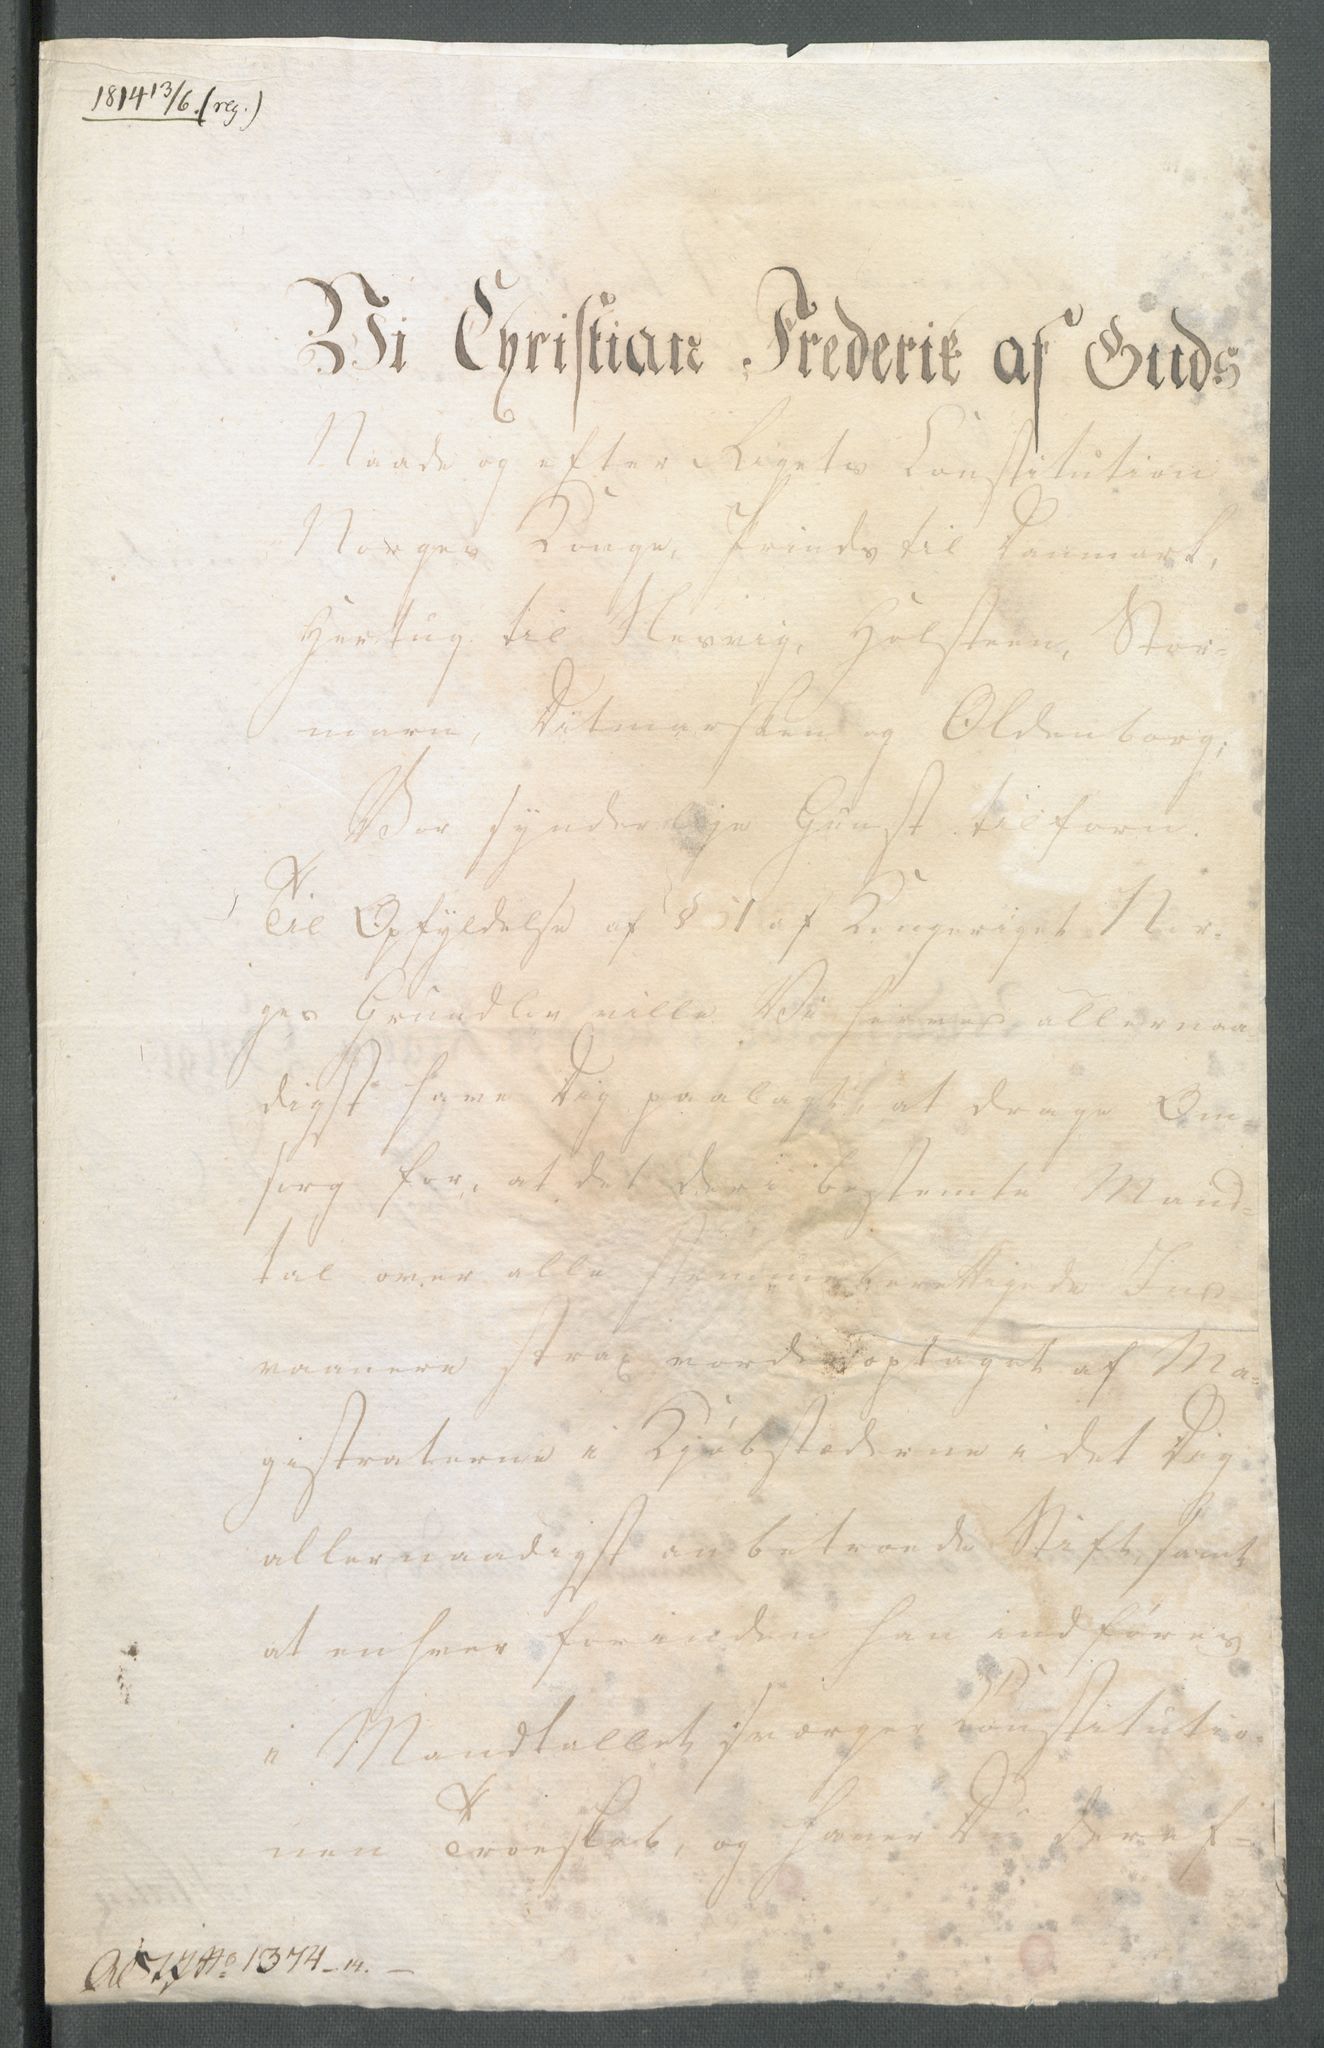 1814 13/6. (reg.)
Vi Christian Frederik af Guds
Naade og efter Rigets Constitution
Norges Konge, Prinds til Danmark,
Hertug til Slesvig, Holsteen, Stor-
marn, Ditmarsken og Oldenborg;
Vor synderlige Gunst tilforn.
Til Opfyldelse af § 51 af Kongeriget Nor-
ges Grundlov ville Vi herved allernaa
digst have Dig paalagt, at drage Om-
sorg for, at det deri bestemte Mand-
tal over alle stemmeberettigede Ind
vaanere strax vorder optaget af Ma-
gistraterne i Kjøbstæderne i det Dig
allernaadigst anbetroede Stift, samt
at enhver forinden han indføres
i Mandtallet, sværger Constitutio-
nen Troeskab, og haver Du deref-
No 1374